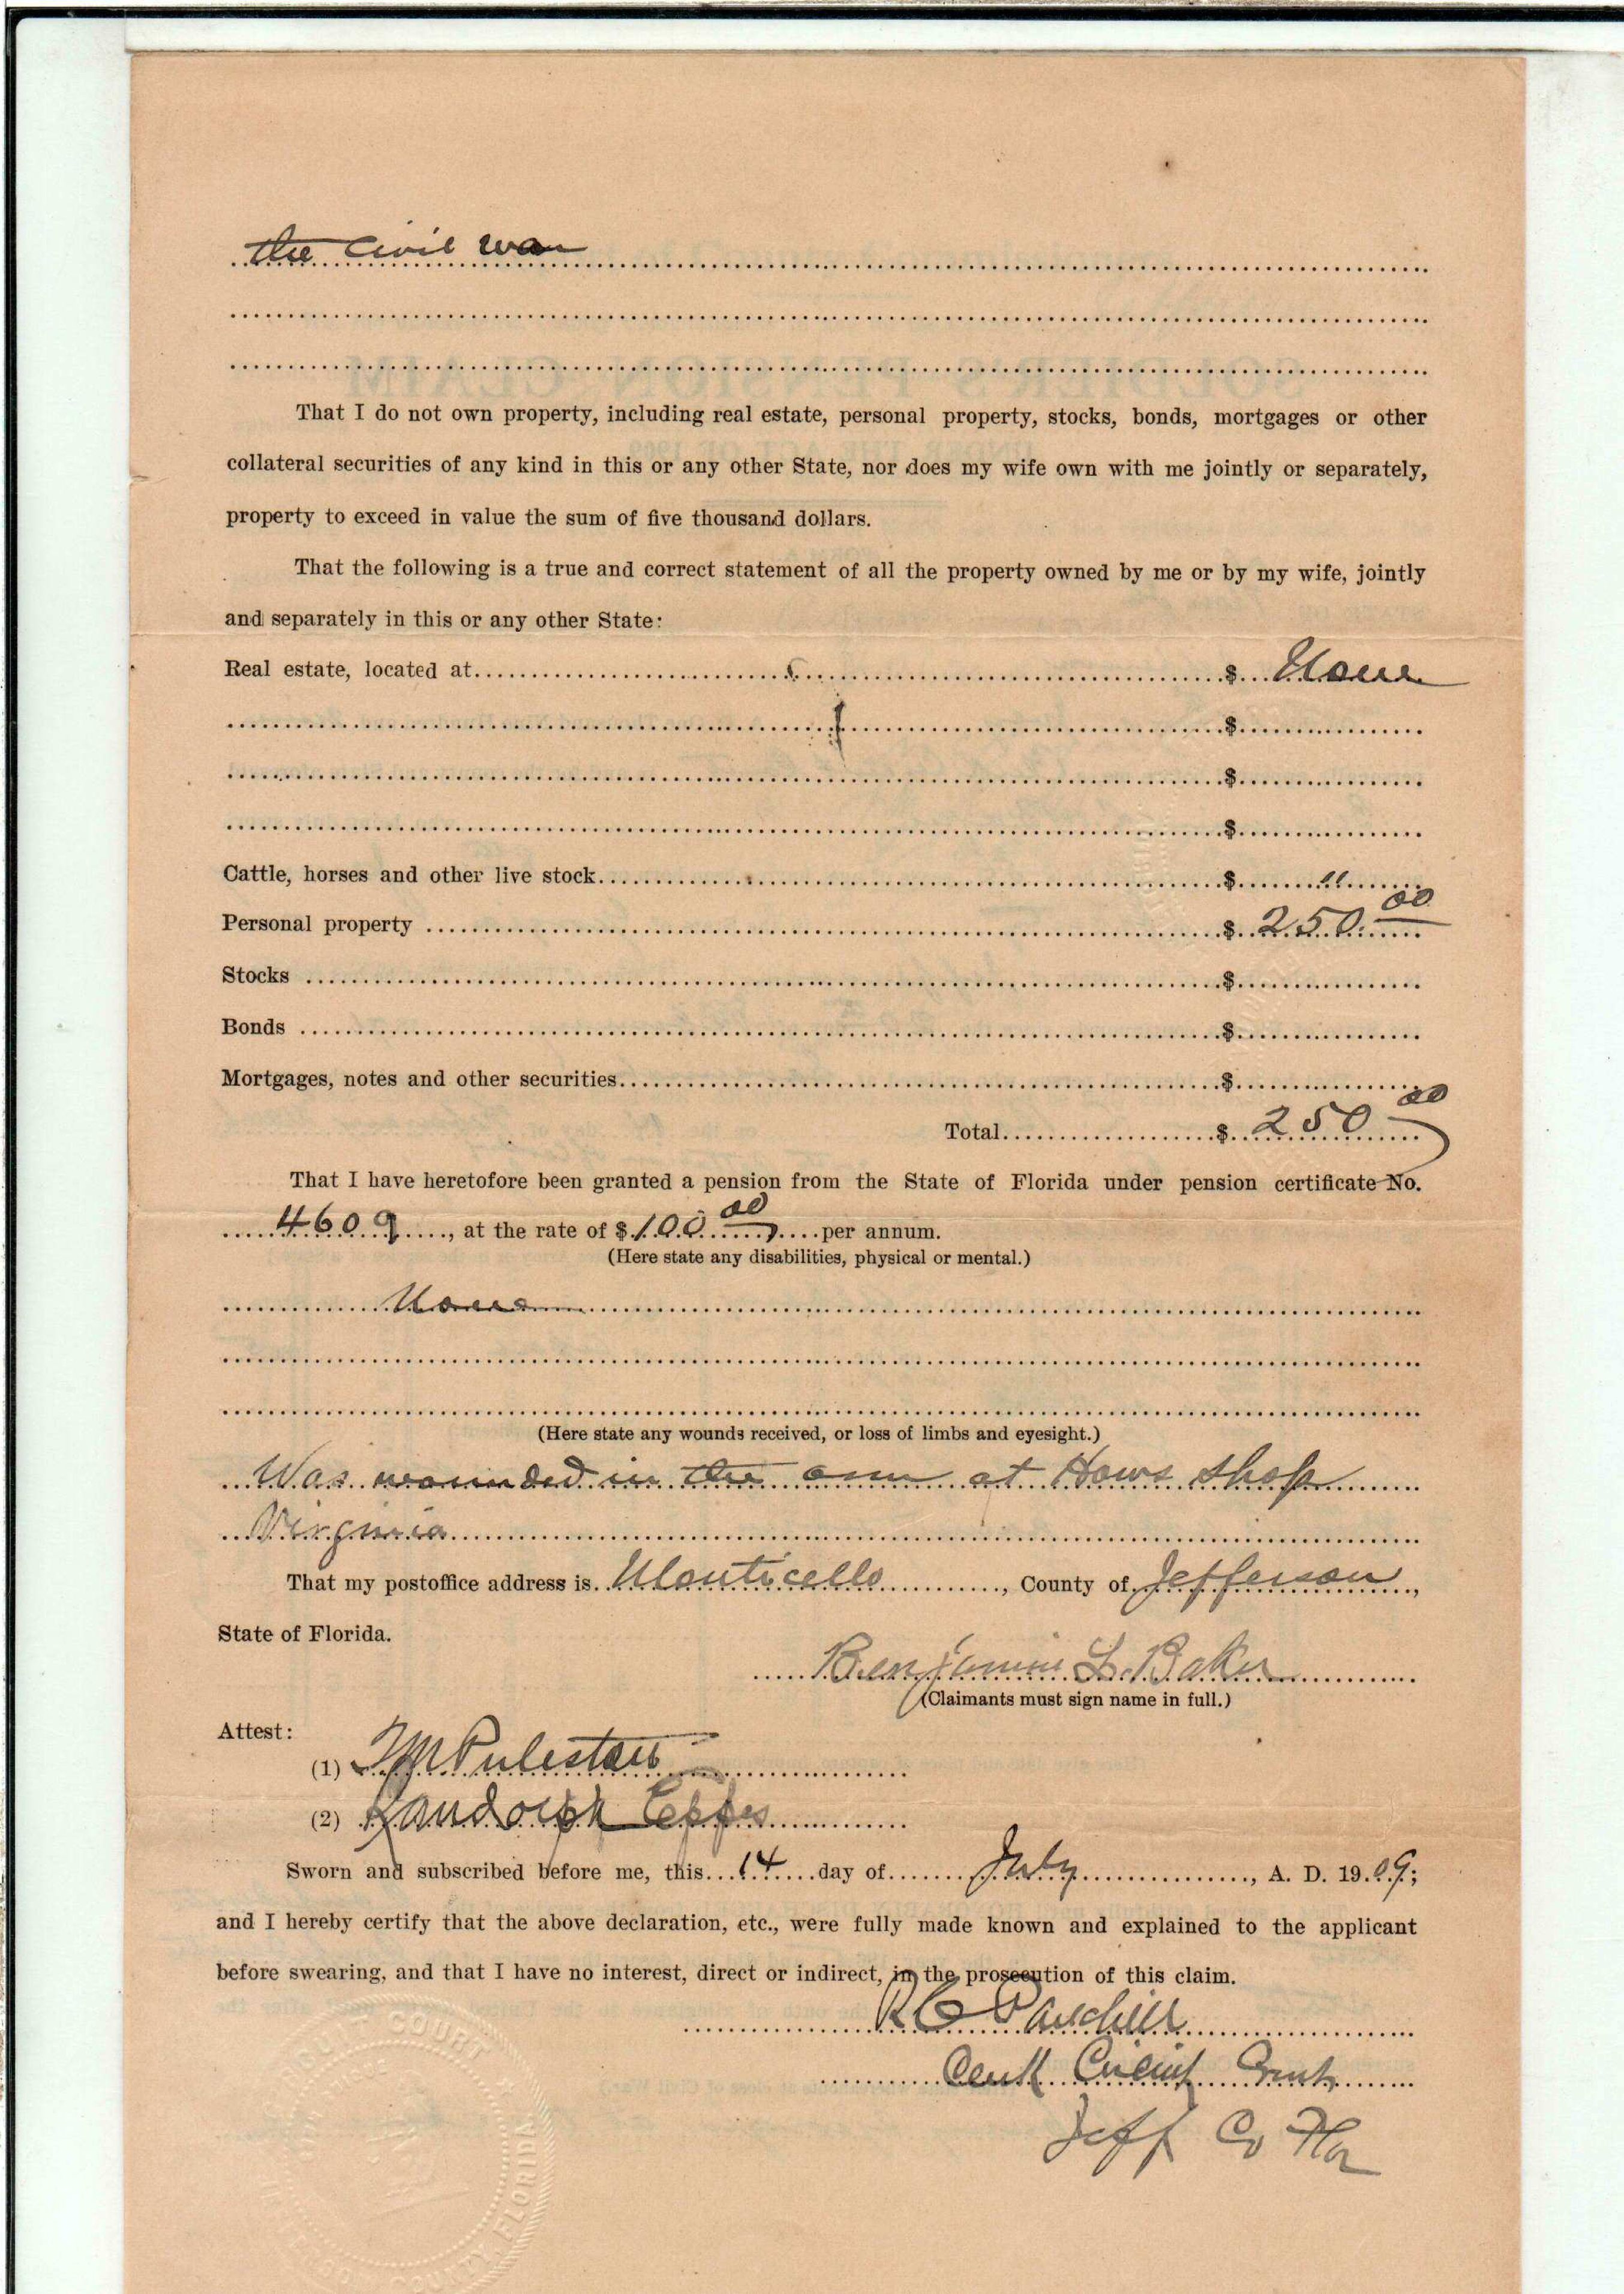 the Civil war
That I do not own property, including real estate, personal property, stocks, bonds, mortgages or other
collateral securities of any kind in this or any other State, nor does my wife own with me jointly or separately,
property to exceed in value the sum of five thousand dollars.
That the following is a true and correct statement of all the property owned by me or by my wife, jointly
and separately in this or any other State:
Real estate, located at $ None
$
$
$
Cattle, horses and other live stock $ "
Personal property $ 250.00
Stocks $
Bonds $
Mortgages, notes and other securities $
Total $ 250 00
That I have heretofore been granted a pension from the State of Florida under pension certificate No.
4609, at the rate of $ 100 00 per annum.
(Here state any disabilities, physical or mental.)
None
(Here state any wounds received, or loss of limbs and eyesight.)
Was wounded in the arm at Hows shop
Virginia
That my postoffice address is Monticello, County of Jefferson,
State of Florida.
Benjamin L. Baker
(Claimants must sign name in full.)
Attest:
(1) T M Puleston
(2) Randolph Eppes
Sworn and subscribed before me, this 14 day of July, A. D. 1909;
and I hereby certify that the above declaration, etc., were fully made known and explained to the applicant
before swearing, and that I have no interest, direct or indirect, in the prosecution of this claim.
R C
Clerk Circuit Court
Jeff Co Fla
COURT
COUNTY, FLORIDA